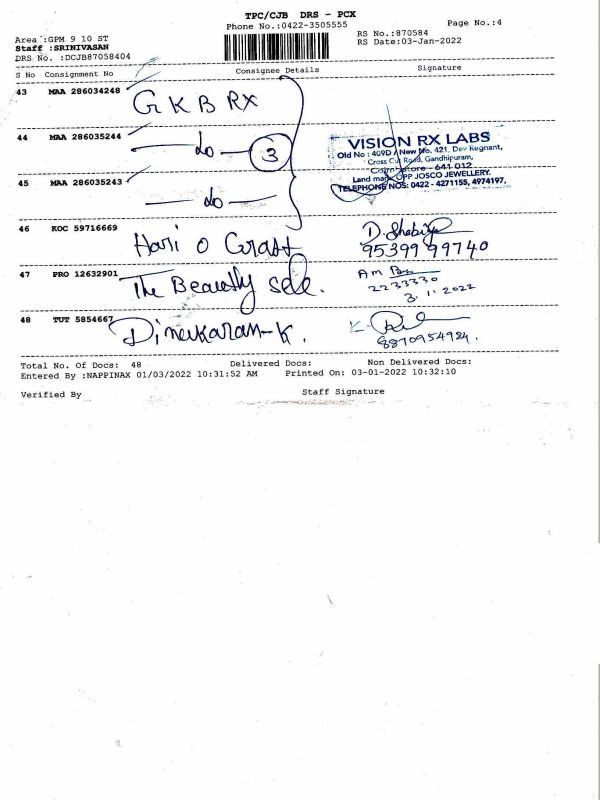 TPC/CJB DRS - PCX
Phone No.:0422-3505555
Page No.:4
Area :GPM 9 10 ST
RS No.:870584
Staff :SRINIVASAN
RS Date:03-Jan-2022
DRS No. :DCJB87058404
S No Consignment No Consignee Details Signature
43 MAA 286034248 GKB RX
44 MAA 286035244 — do — 3
VISION RX LABS
Old No : 409D / New No. 421, Dev Regnant,
Cross Cut Road, Gandhipuram,
Coimbatore - 641 012
Land mark OPP JOSCO JEWELLERY.
TELEPHONE NOS: 0422 - 4271155, 4974197,
45 MAA 286035243 — do —
46 KOC 59716669 Hari O
95399 99740
47 PRO 12632901 The
2233330
3.1.2022
48 TUT 5854667 Dinakaran-K.
8870954984.
Total No. Of Docs: 48 Delivered Docs: Non Delivered Docs:
Entered By :NAPPINAX 01/03/2022 10:31:52 AM Printed On: 03-01-2022 10:32:10
Verified By Staff Signature